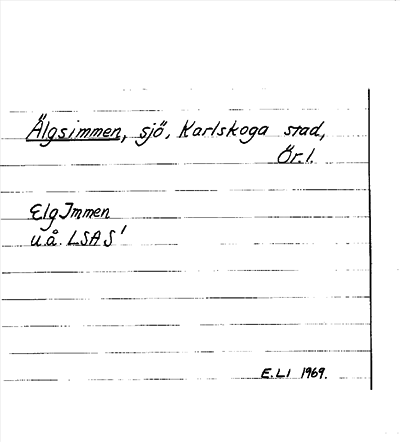 Älgsimmen, sjö, Karlskoga stad,
Ör. l.
Elg Immen
u.å. LSA S'
E.LI 1969.